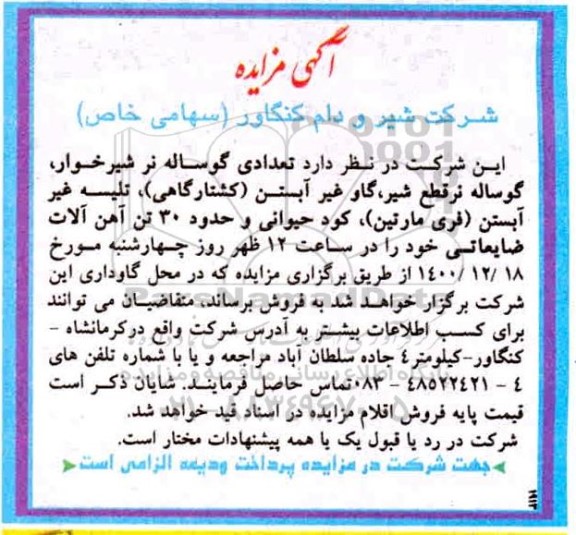 آگهی مزایده
شرکت شیر و دام کنگاور (سهامی خاص)
این شرکت در نظر دارد تعدادی گوساله نر شیرخوار،
گوساله نرقطع شیر،گاو غیر آبستن (کشتارگاهی)، تلیسه غیر
آبستن (فری مارتین)، کود حیوانی و حدود ۳۰ تن آهن آلات
ضایعاتی خود را در ساعت ۱۲ ظهر روز چهارشنبه مورخ
۱۸ /۱۲ /۱۴۰۰ از طریق برگزاری مزایده که در محل گاوداری این
شرکت برگزار خواهد شد به فروش برساند، متقاضیان می توانند
برای کسب اطلاعات بیشتر به آدرس شرکت واقع درکرمانشاه –
کنگاور-کیلومتر٤ جاده سلطان آباد مراجعه و یا با شماره تلفن های
٤ – ٤٨٥٢٢٤٢١ – ۰۸۳تماس حاصل فرمایند. شایان ذکر است
قیمت پایه فروش اقلام مزایده در اسناد قید خواهد شد.
شرکت در رد یا قبول یک یا همه پیشنهادات مختار است.
جهت شرکت در مزایده پرداخت ودیعه الزامی است